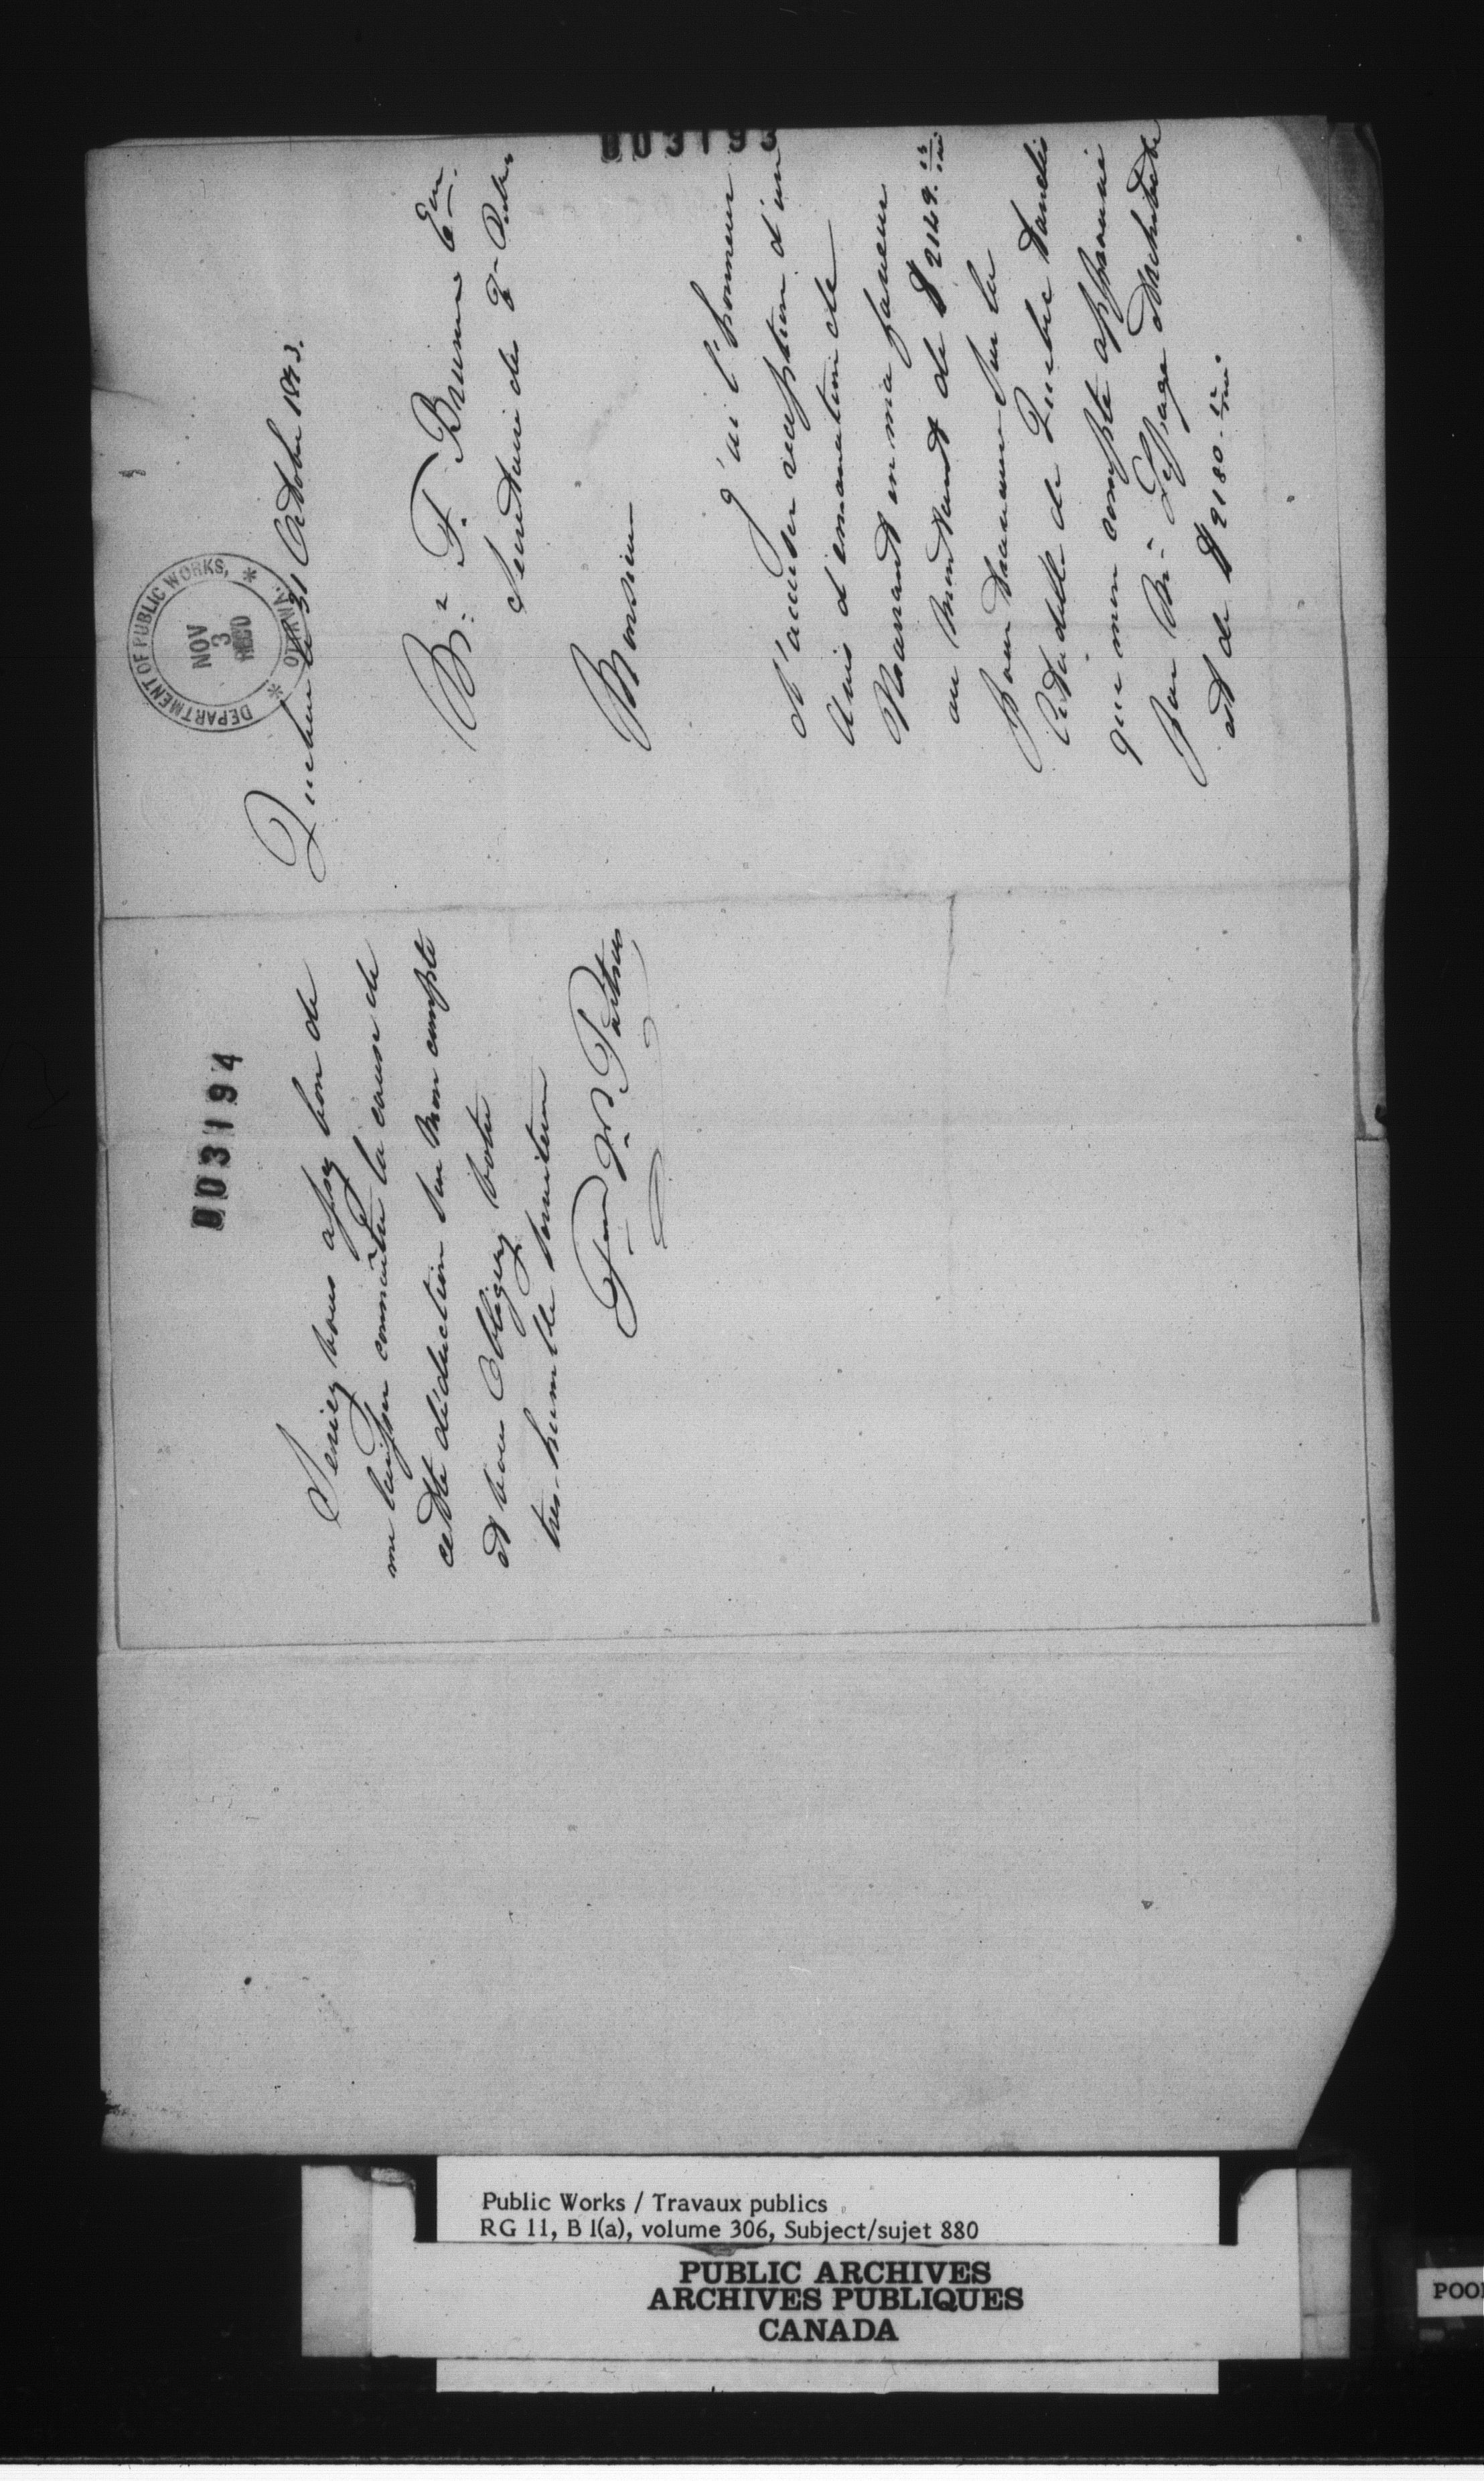 003193
DEPARTMENT OF PUBLIC WORKS,
NOV
3
RECD
OTTAWA.
Quebec le 31 Octobre 1873.
Mr. F. Braun Ecr.
Secretaire du
Monsieur
J'ai l'honneur
d'accuser reception d'un
Avis d'emanation de
Warrant en ma faveur
au Montant de $2149.
pour travaux sur la
Citadelle de Quebec tandis
que mon compte approuvé
par Mr. Lepage Architecte
est de $2180.
003194
Seriez vous assez bon de
me laisser connaître la cause de
cette déduction sur mon compte
et vous Obligerez votre
tres-humble serviteur
Public Works / Travaux publics
RG 11, B 1(a), volume 306, Subject/sujet 880
PUBLIC ARCHIVES
ARCHIVES PUBLIQUES
CANADA